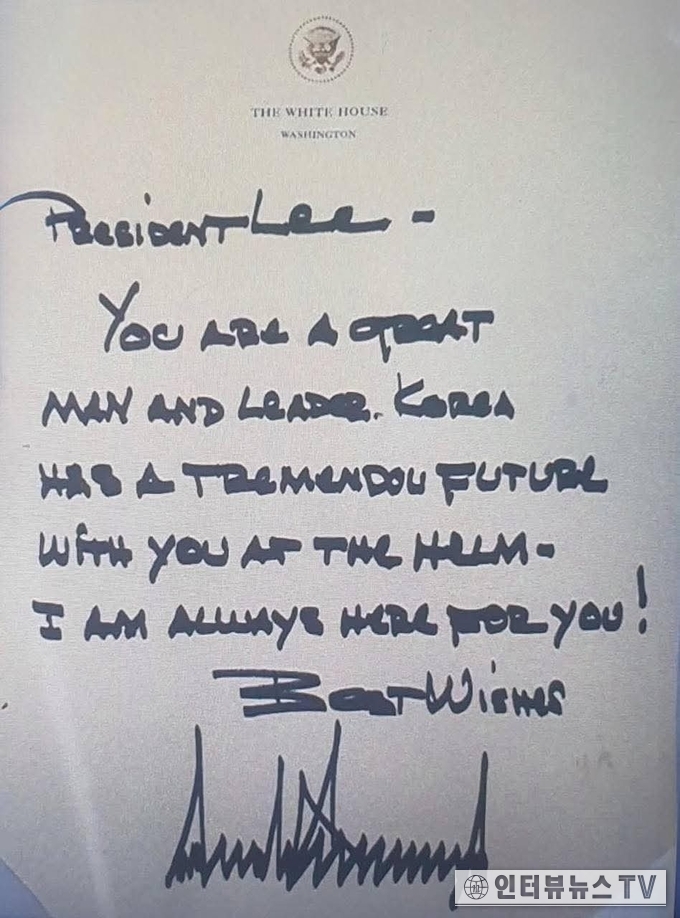 THE WHITE HOUSE
WASHINGTON
PRESIDENT LEE -
YOU ARE A GREAT
MAN AND LEADER. KOREA
HAS A TREMENDOU FUTURE
WITH YOU AT THE HELM-
I AM ALWAYS HERE FOR YOU!
BEST WISHES
인터뷰뉴스TV